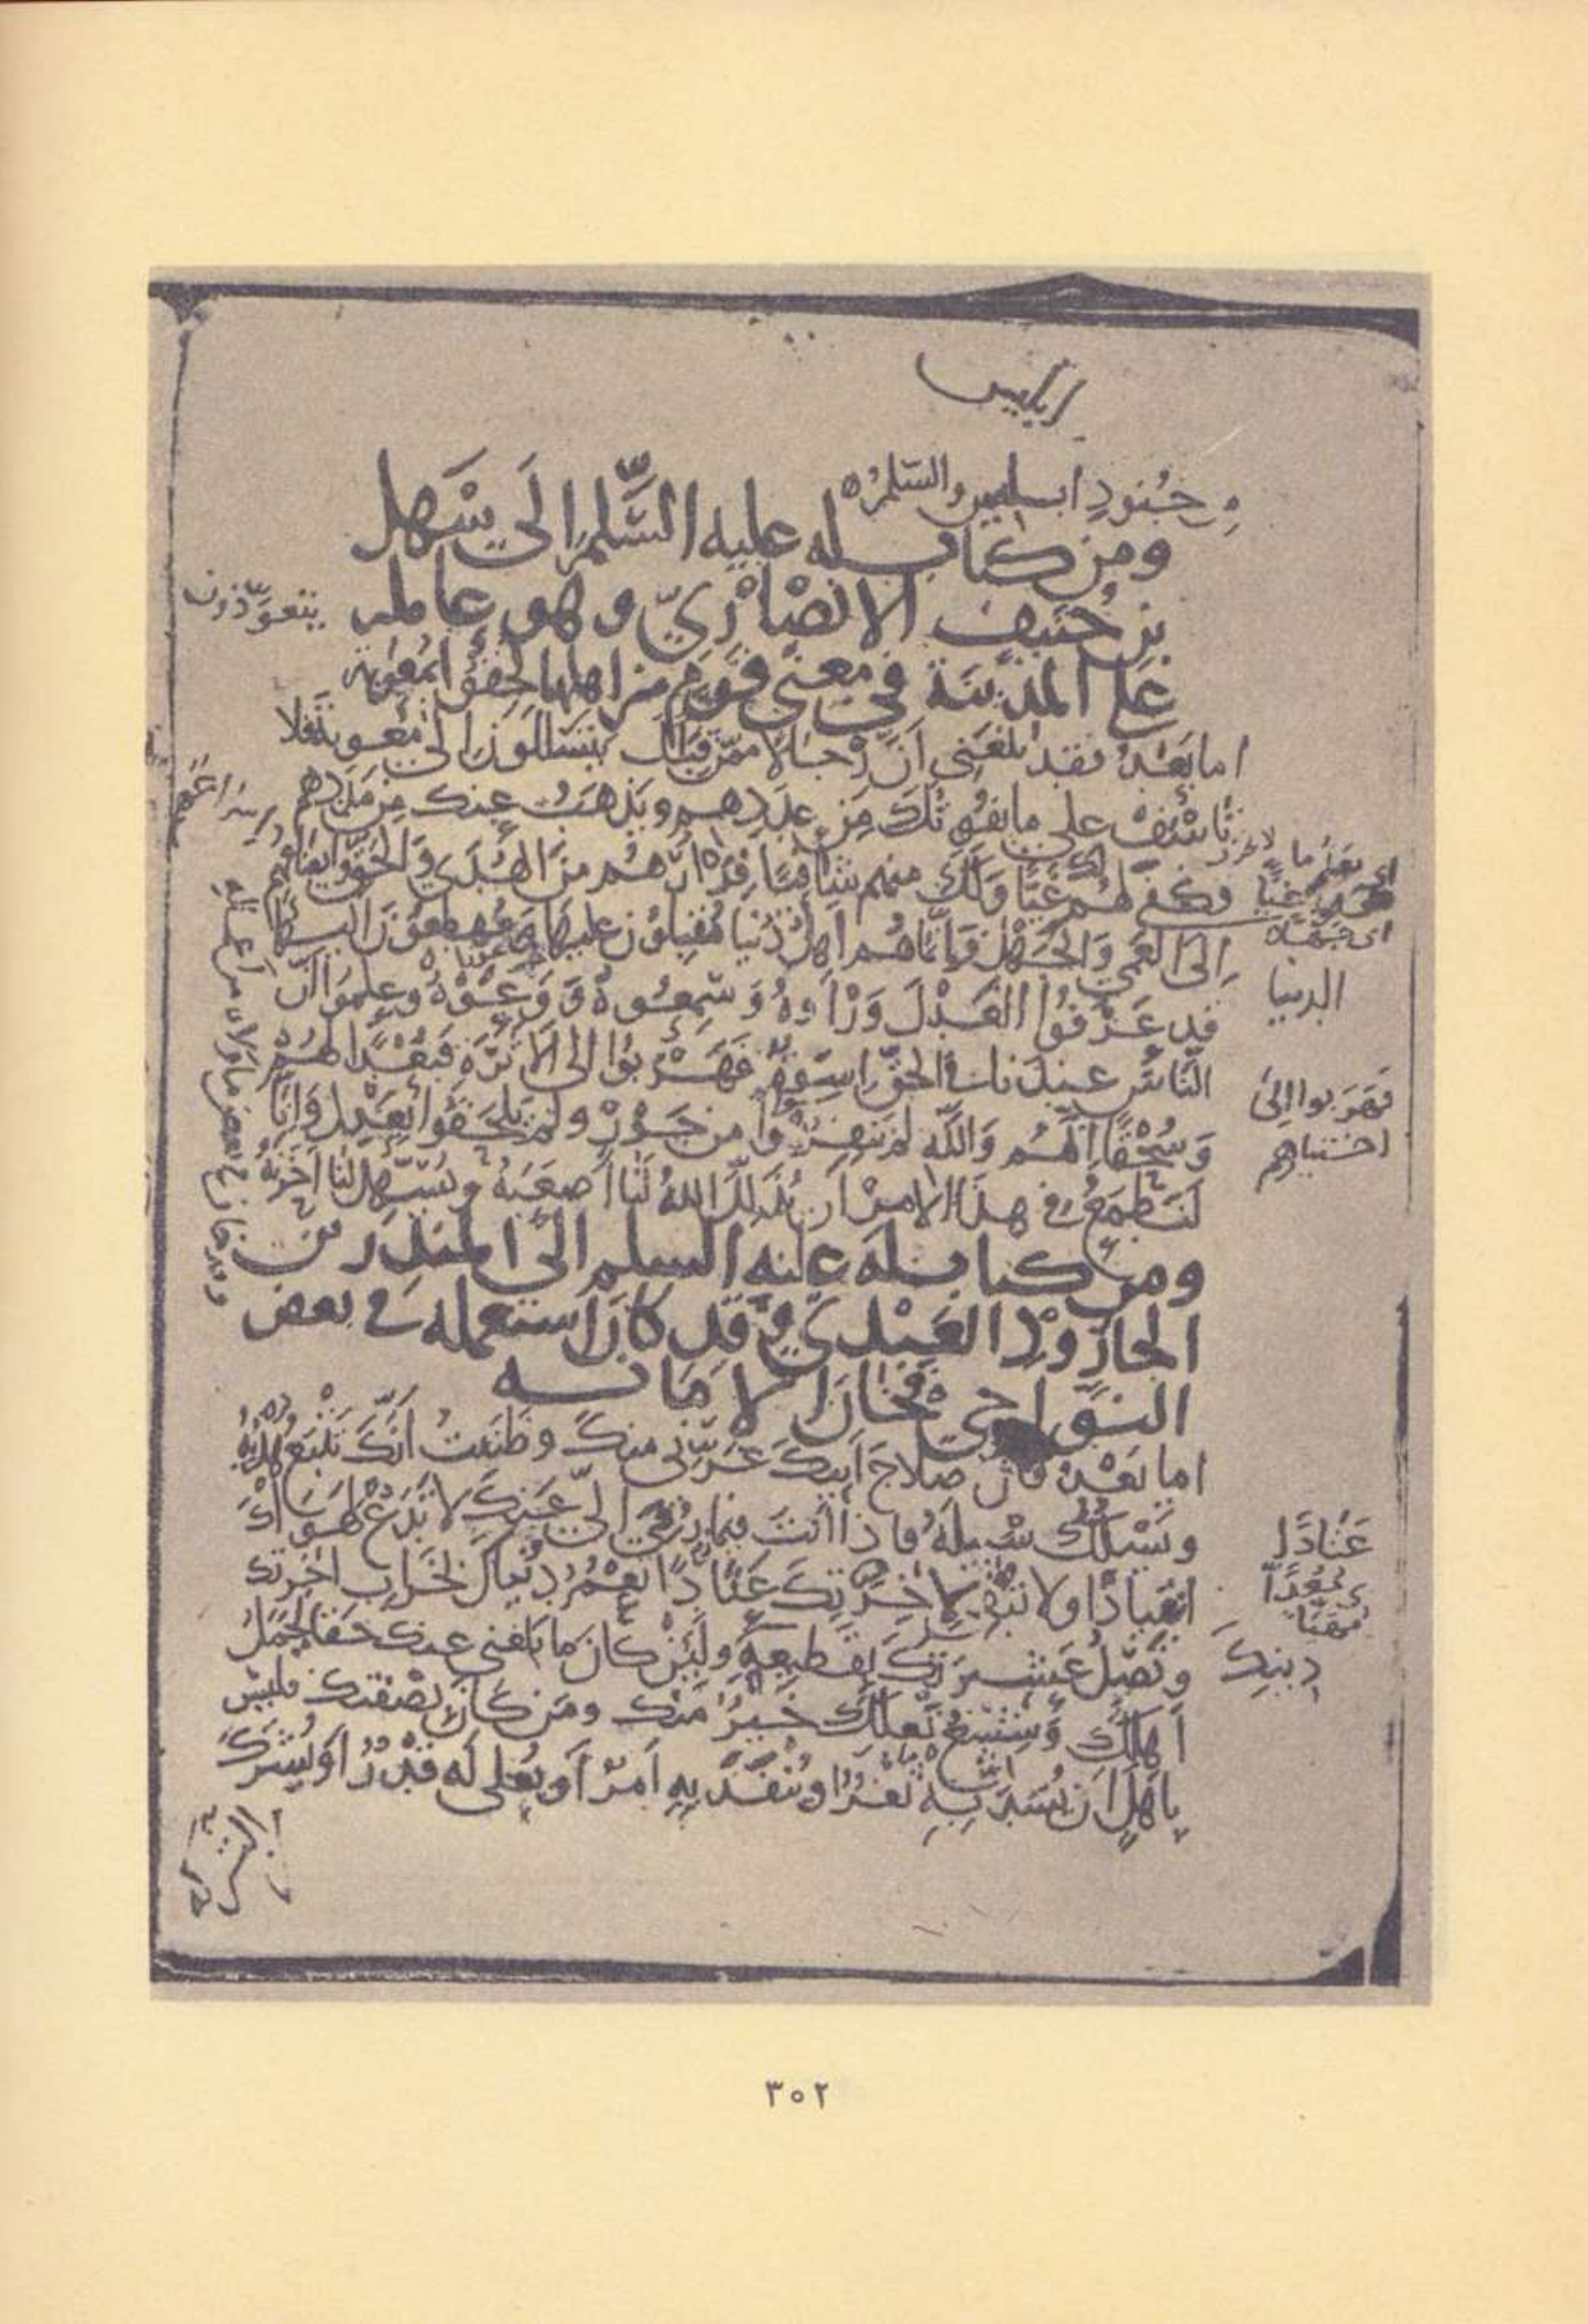 من جنود ابليس والسلم
ومن كتاب له عليه السَّلم الى سَهل
بن حُنيف الانصَاريّ وهو عامله
على المدينَة في معنى قَومٍ من اهلها لحِقوُا بمُعوية
اما بَعْدُ فقد بلغَني اَنّ رجالا ممّن قِبَلك يتسَللون الى مُعوية فلا
تَأسَفْ على ما يفُوتُكَ مِن عدَدهم ويَذهَبُ عنك من مَدَدهم
فكفى لهُم غيًّا ولك منهم شَافيًا فِرَارُهُم منَ الهُدَى وَالحَقّ وايضَاعُهُم
اِلىَ العَمى وَالجَهْل وَاِنّما هُم اَهلُ دُنيا مُقبلوُن عليهَا ومُهطِعُوْن اليهَا
قد عَرَفوُا العَدْلَ وَرَاَوهُ وَسَمِعُوهُ وَوَعَوْهُ وعلِموَا انّ
النَّاسَ عندَنا في الحقّ اسِوَةٌ فَهَرَبوُا الى الاَثَرَة فبُعْدًا لهُمْ
وَسُحْقًا اِنَّهُم وَاللَّهِ لم يَنفِرُوا من جَوْرٍ ولم يَلحَقوُا بعَدْلٍ وَاِنَّا
لنَطمَعُ في هذا الامرْ اَن يُذَلِّلَ اللهُ لَنَا صَعبَهُ ويُسَهِّل لنا حَزنَهُ
ومن كتاب له عليه السلم الى المنذر بن
الجارُوْد العَبْديّ وقد كان استعمله في بعض
النَّواحي فخان الامانه
اما بَعْدُ فان صلاحَ اَبيكَ غرّني منكَ وظنَنتُ اَنَّكَ تتْبَعُ هَدْيَهُ
وتَسْلكُ سَبيلَهُ فاذا اَنتَ فيما رُقّيَ الىّ عَنكَ لا تَدَعُ لهَوَاكَ
انقيادًا ولا تُبقي لاٰخرَتِكَ عَتادًا تعْمُرُ دُنياكَ بخَراب اٰخرتك
وتَصِلُ عَشيرَتكَ بقَطيعةِ دينِكَ ولَئِنْ كانَ ما بلغني عنك حَقا لجَمَلُ
اَهلكَ وَشِسْعُ نَعلكَ خَيرٌ منك ومَن كانَ بصْفتك فليسَ
باهلٍ اَن يُسَدَّ بِهِ ثَغرٌ او يُنْفَذَ بهِ اَمرٌ اَو يُعلى لَه قَدْرٌ اَو يُشرَكَ
الدنيا
فهَرَبوا الى
عَتادًا
دينِكَ
٣٥٢